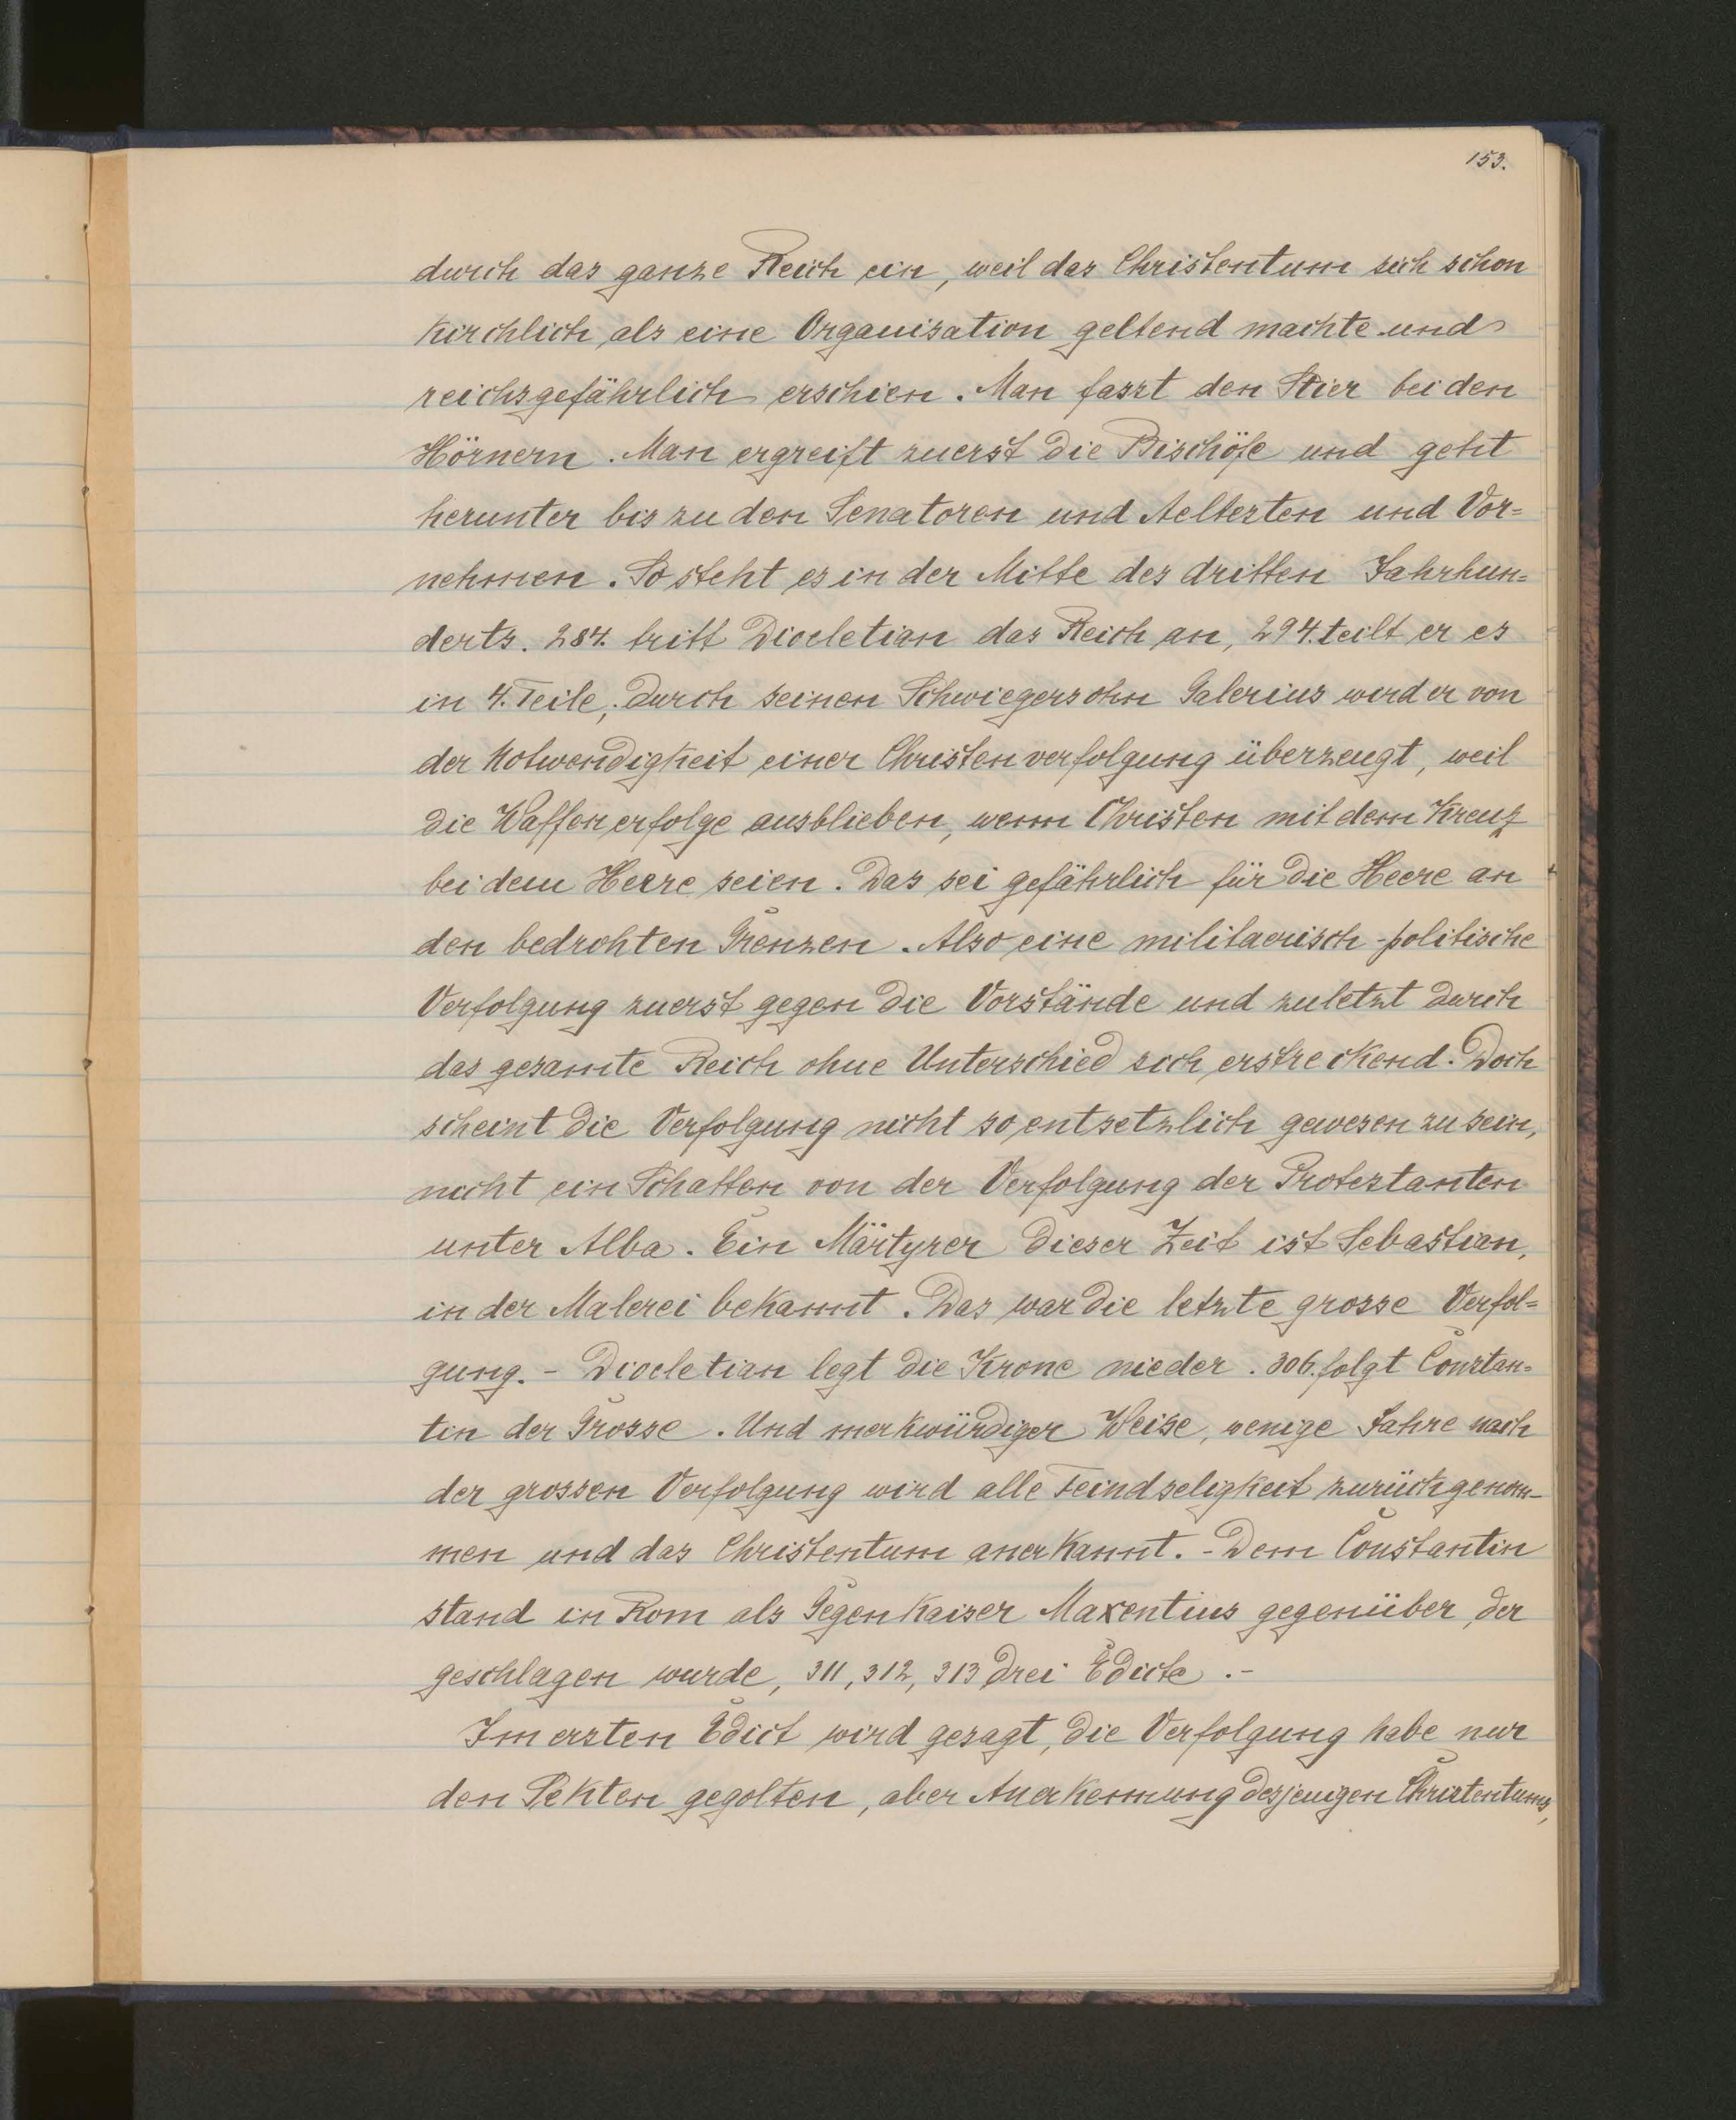 153.
durch das ganze Reich ein, weil das Christentum sich schon
kirchlich als eine Organisation geltend machte und
reichsgefährlich erschien. Man fasst den Stier bei den
Hörnern. Man ergreift zuerst die Bischöfe und geht
herunter bis zu den Senatoren und Aeltesten und Vor=
nehmen. So steht es in der Mitte des dritten Jahrhun=
derts. 284. tritt Diocletian das Reich an, 294. teilt er es
in 4. Teile; durch seinen Schwiegersohn Galerius wird er von
der Notwendigkeit einer Christenverfolgung überzeugt, weil
die Waffenerfolge ausblieben, wenn Christen mit dem Kreuz
bei dem Heere seien. Das sei gefährlich für die Heere an
den bedrohten Grenzen. Also eine militaerisch-politische
Verfolgung zuerst gegen die Vorstände und zuletzt durch
das gesamte Reich ohne Unterschied sich erstreckend. Doch
scheint die Verfolgung nicht so entsetzlich gewesen zu sein,
nicht ein Schatten von der Verfolgung der Protestanten
unter Alba. Ein Märtyrer dieser Zeit ist Sebastian,
in der Malerei bekannt. Das war die letzte grosse Verfol=
gung. - Diocletian legt die Krone nieder. 306. folgt Constan=
tin der Grosse. Und merkwürdiger Weise, wenige Jahre nach
der grossen Verfolgung wird alle Feindseligkeit zurückgenom-
men und das Christentum anerkannt. - Dem Constantin
stand in Rom als Gegenkaiser Maxentius gegenüber, der
geschlagen wurde, 311, 312, 313 drei Edicte. -
Im ersten Edict wird gesagt, die Verfolgung habe nur
den Sekten gegolten, aber Anerkennung desjenigen Christentums,